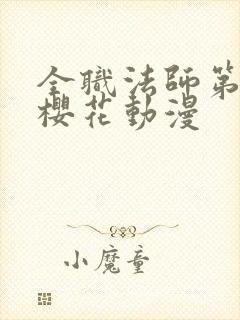 全職法師第
櫻花動漫
小魔童